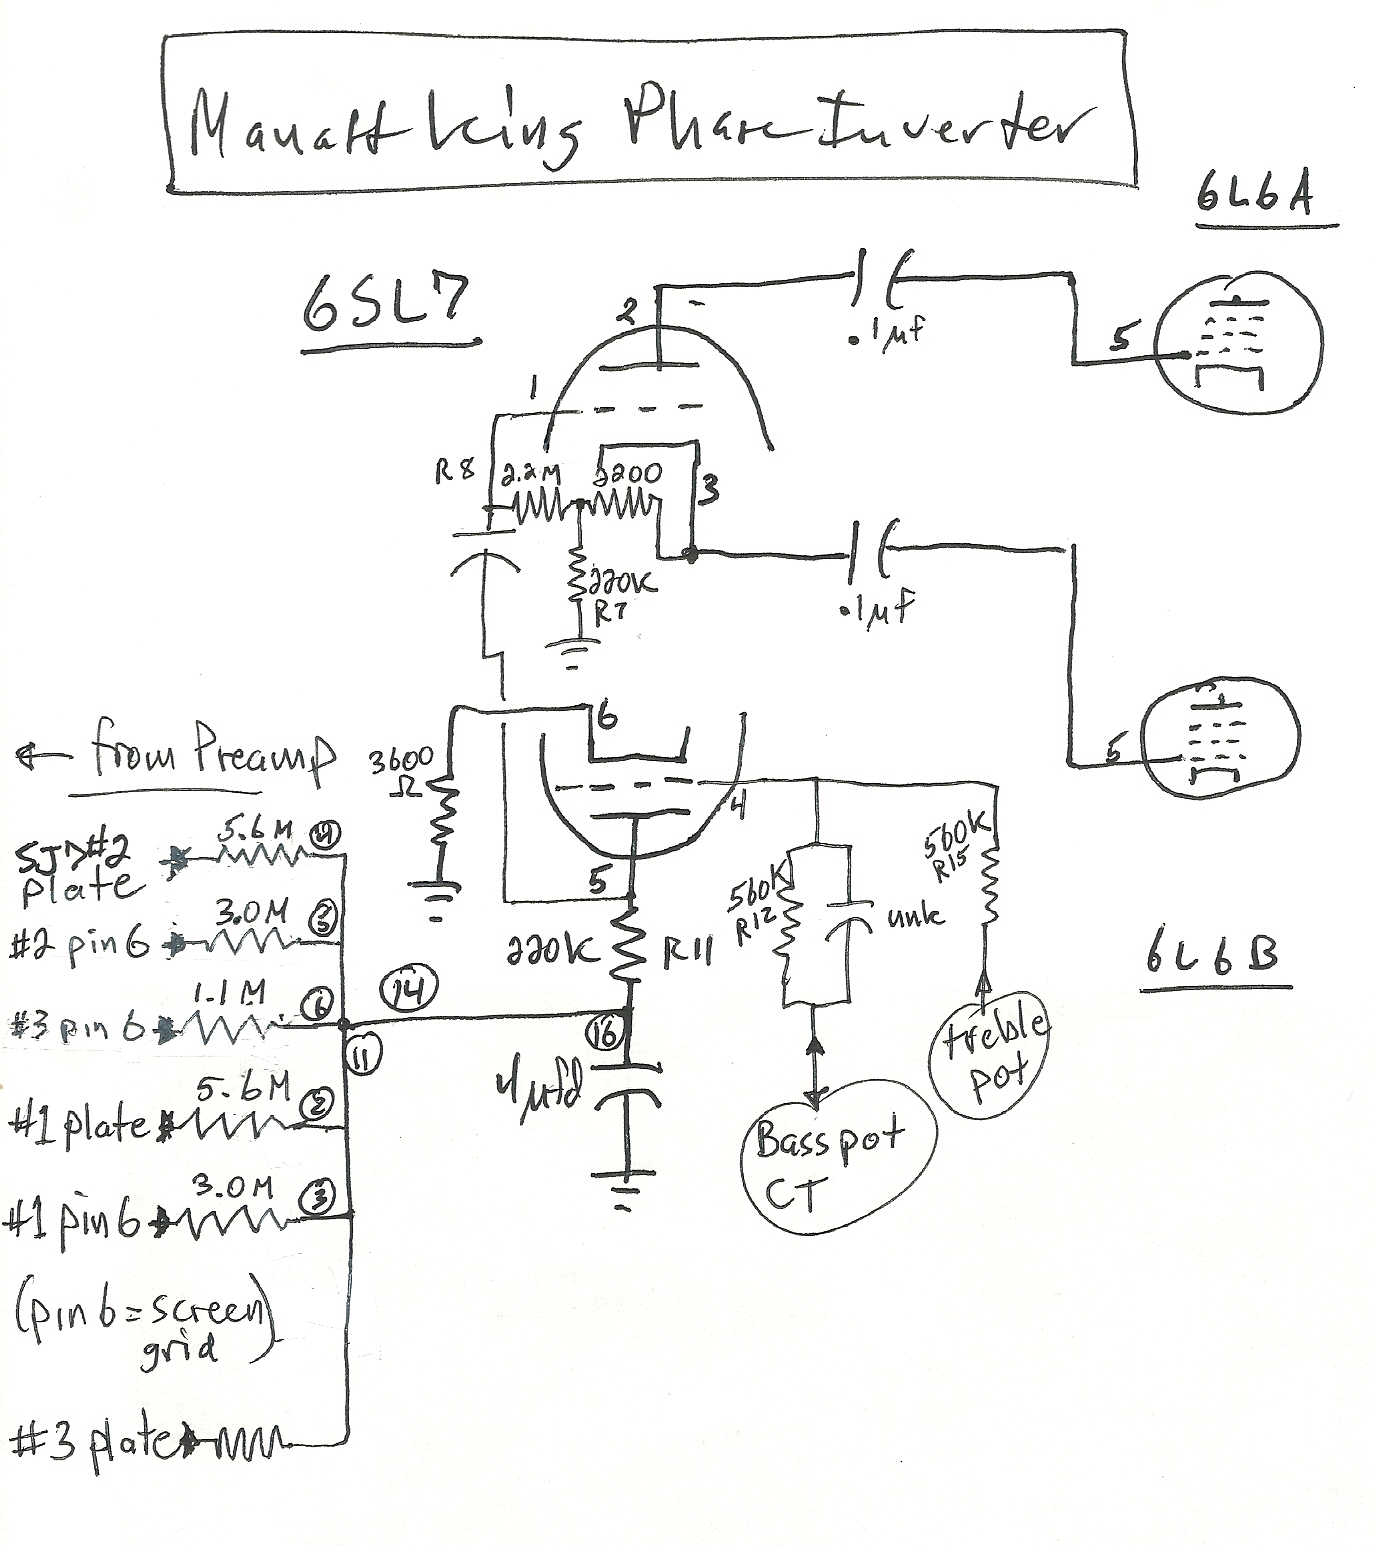 Manatt King Phase Inverter
6L6A
6SL7
2
.1µf
5
1
R8
2.2M
2200
3
220K
R7
.1µf
6
← from Preamp
3600
Ω
5
4
SJ7#2
plate
5.6M
5
560K
R12
unk
560K
R15
#2 pin 6
3.0M
3
220K
R11
6L6B
#3 pin 6
1.1M
6
14
11
16
4µfd
treble
pot
#1 plate
5.6M
2
Bass pot
CT
#1 pin 6
3.0M
3
(pin 6 = screen
grid)
#3 plate